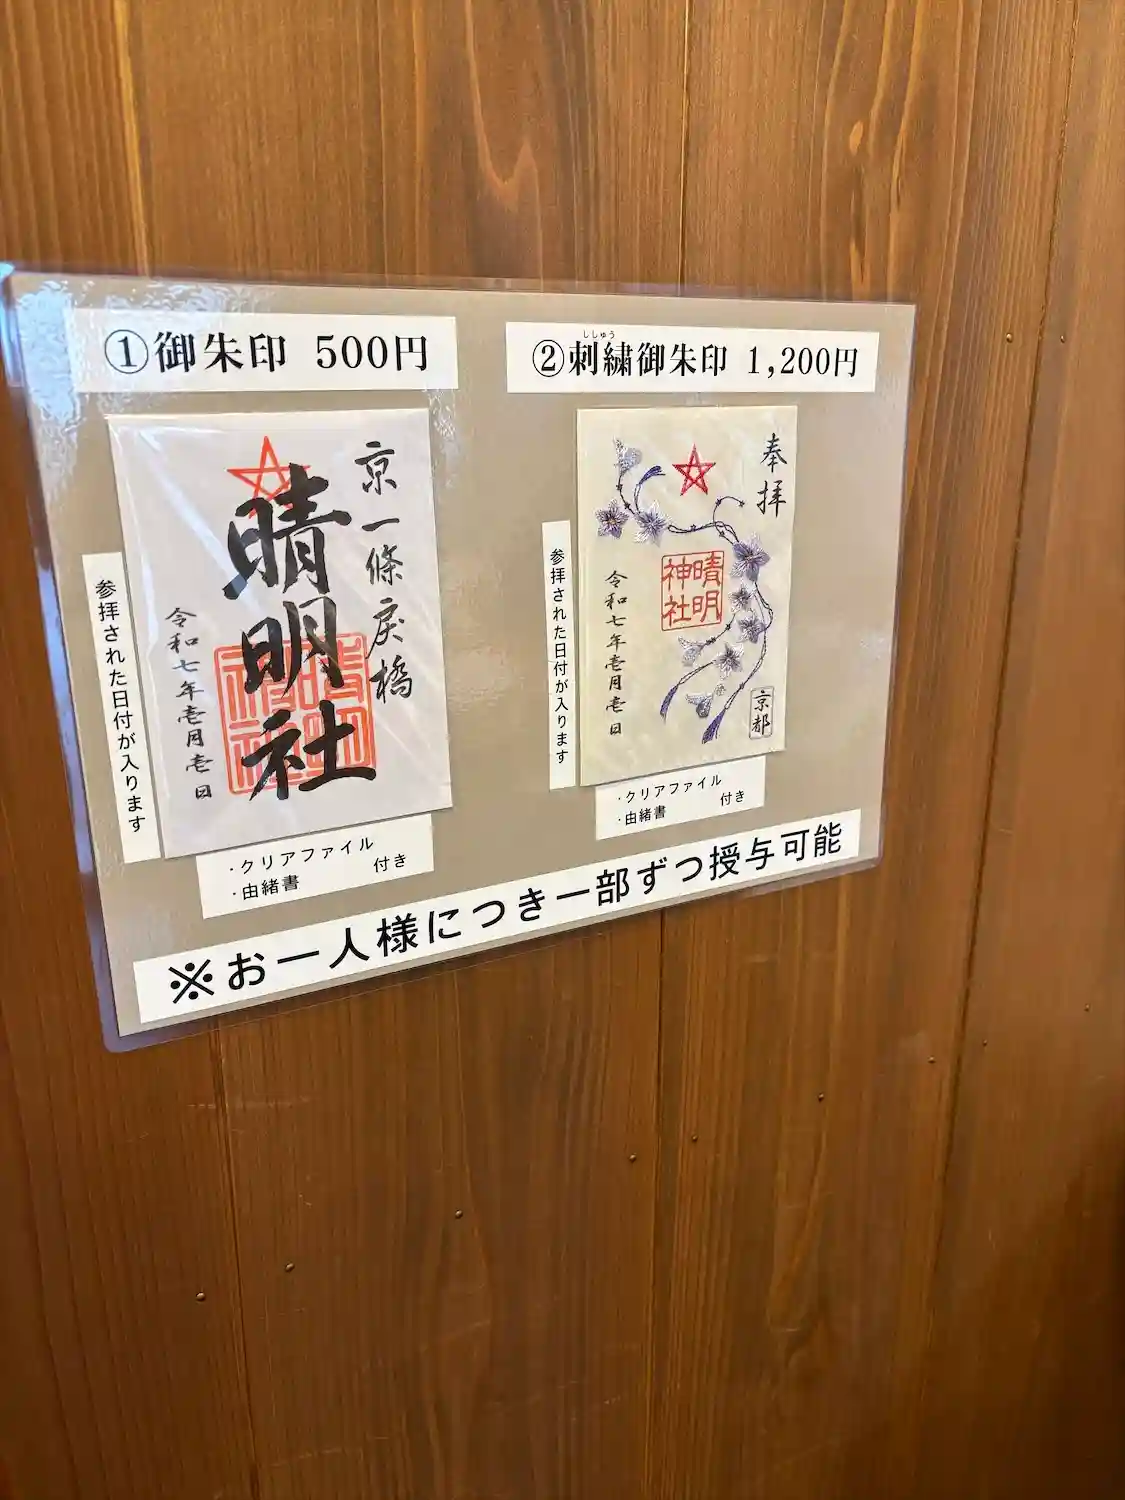 ①御朱印 500円
京一條戻橋
晴明社
晴明神社
令和七年壱月壱日
参拝された日付が入ります
・クリアファイル
・由緒書
付き
ししゅう
②刺繍御朱印 1,200円
奉拝
晴明神社
令和七年壱月壱日
京都
参拝された日付が入ります
・クリアファイル
・由緒書
付き
※お一人様につき一部ずつ授与可能